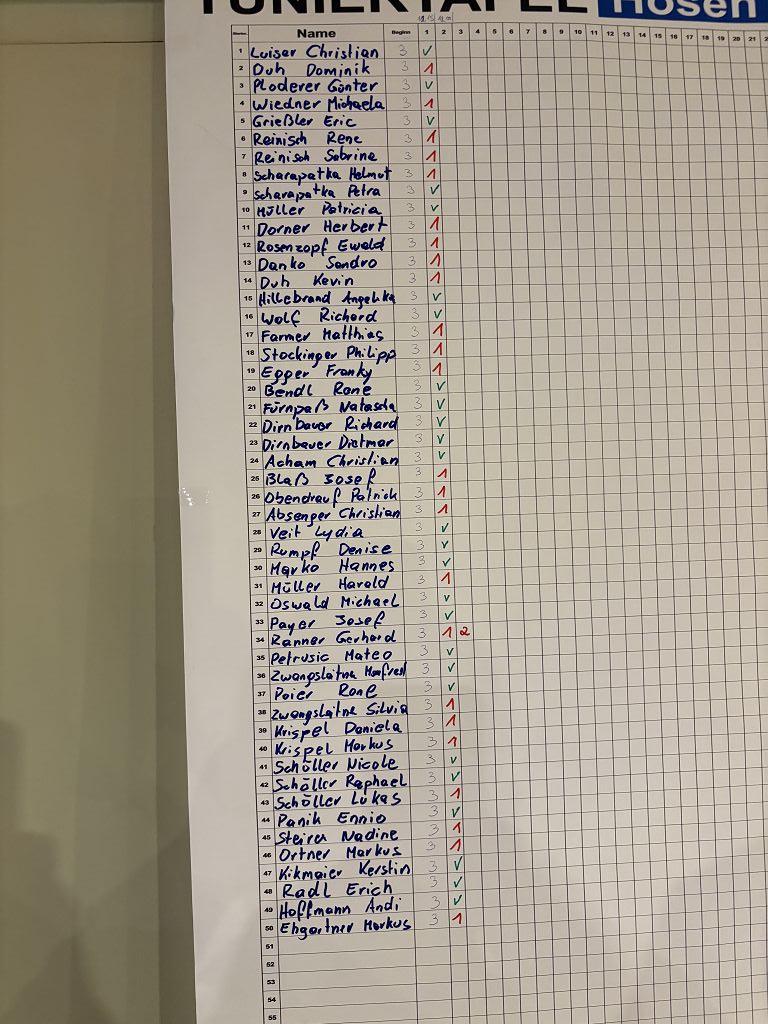 TURNIERTAFEL Hosen
Name Beginn 1 2 3 4 5 6 7 8 9 10 11 12 13 14 15 16 17 18 19 20 21
1 Luiser Christian 3 ✓
2 Duh Dominik 3 1
3 Ploderer Günter 3 ✓
4 Wiedner Michaela 3 1
5 Grießler Eric 3 ✓
6 Reinisch Rene 3 1
7 Reinisch Sabrine 3 1
8 Scharapatka Helmut 3 1
9 Scharapatka Petra 3 ✓
10 Müller Patricia 3 ✓
11 Dorner Herbert 3 1
12 Rosenzopf Ewald 3 1
13 Danko Sandro 3 1
14 Duh Kevin 3 1
15 Hillebrand Angelika 3 ✓
16 Wolf Richard 3 ✓
17 Farmer Matthias 3 1
18 Stockinger Philipp 3 1
19 Egger Franky 3 1
20 Bendl Rene 3 ✓
21 Fürnpaß Natascha 3 ✓
22 Dirnbauer Richard 3 ✓
23 Dirnbauer Dietmar 3 ✓
24 Acham Christian 3 ✓
25 Blaß Josef 3 1
26 Obendrauf Patrick 3 1
27 Absenger Christian 3 1
28 Veit Lydia 3 ✓
29 Rumpf Denise 3 ✓
30 Marko Hannes 3 ✓
31 Müller Harald 3 1
32 Oswald Michael 3 ✓
33 Payer Josef 3 ✓
34 Ranner Gerhard 3 1 2
35 Petrusic Mateo 3 ✓
36 Zwangsleitne Manfred 3 ✓
37 Poier Rene 3 ✓
38 Zwangsleitne Silvia 3 1
39 Krispel Daniela 3 1
40 Krispel Markus 3 1
41 Schöller Nicole 3 ✓
42 Schöller Raphael 3 ✓
43 Schöller Lukas 3 1
44 Panik Ennio 3 ✓
45 Steirer Nadine 3 1
46 Ortner Markus 3 1
47 Kikmaier Kerstin 3 ✓
48 Radl Erich 3 ✓
49 Hoffmann Andi 3 ✓
50 Ehgartner Markus 3 1
51
52
53
54
55